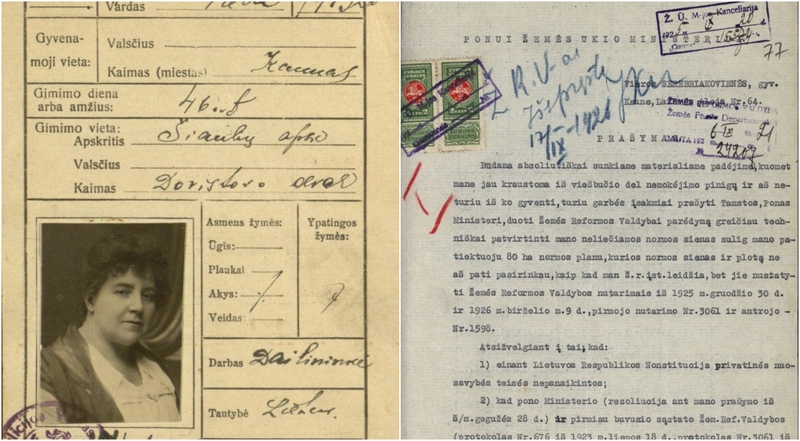 Vardas
Gyvena-
moji vieta:
Valsčius
Kaimas (miestas) Kaunas
Gimimo diena
arba amžius:
46
Gimimo vieta:
Apskritis Šiaulių apskr
Valsčius
Kaimas
Asmens žymės:
Ūgis:
Plaukai
Akys:
Veidas:
Ypatingos
žymės:
Darbas Dailininkė
Tautybė
Ž. Ū. M-jos Kanceliarija
77
PONUI ŽEMĖS ŪKIO MINISTERIUI
Vieros SEREBRIAKOVIENĖS, gyv.
Kaune, Nr.64.
ŽEMĖS REFORMOS VALDYBA
Žemės Departamentas
24207
L.R.V-ai
17/IX-1926
PRAŠYMAS
Būdama absoliutiškai sunkiame materialiame padėjime, kuomet
mane jau kraustoma iš viešbučio del nemokėjimo pinigų ir aš ne-
turiu iš ko gyventi, turiu garbės įsakmiai prašyti Tamstos, Ponas
Ministeri, duoti Žemės Reformos Valdybai parėdymą greičiau tech-
niškai patvirtinti mano neliečiamos normos sienas sulig mano pa-
tiektuoju 80 ha normos planu, kurios normos sienas ir plotą ne
aš pati pasirinkau, kaip kad man ž.r.įst.leidžia, bet jie nustaty-
ti Žemės Reformos Valdybos nutarimais iš 1925 m.gruodžio 30 d.
ir 1926 m.birželio m.9 d., pirmojo nutarimo Nr.3061 ir antrojo -
Nr.1598.
Atsižvelgiant į tai, kad:
1) einant Lietuvos Respublikos Nonstitucija privatinės nuo-
savybės teisės nepanaikintos;
2) kad pono Ministerio (rezoliucija ant mano prašymo iš
š/m.gegužės 28 d.) ir pirmiau buvusio sąstato Žem.Ref.Valdybos
(protokolas Nr.676 iš 1923 m.liepos 18 d.; protokolas Nr.3061 iš